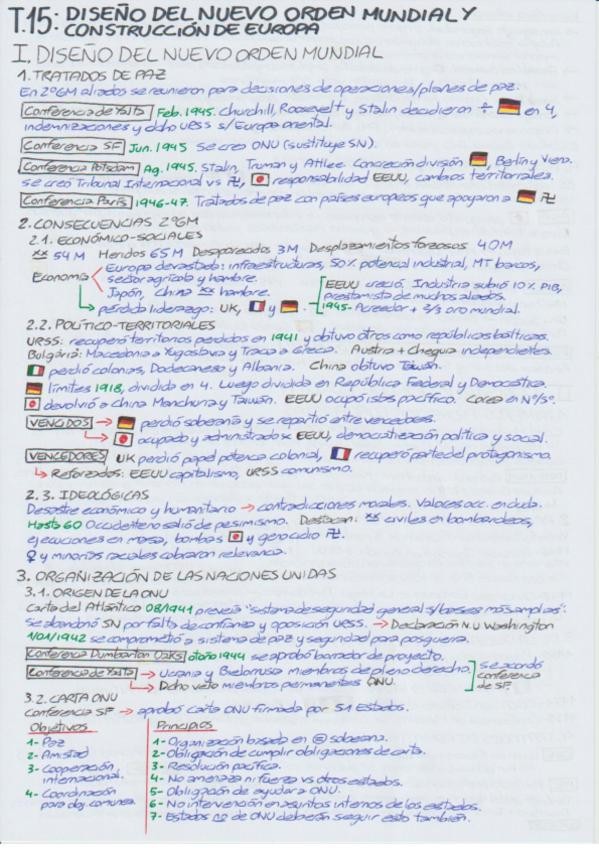 T.15: DISEÑO DEL NUEVO ORDEN MUNDIAL Y
CONSTRUCCIÓN DE EUROPA
I. DISEÑO DEL NUEVO ORDEN MUNDIAL
1. TRATADOS DE PAZ
En 2ªGM aliados se reunieron para decisiones de operaciones/planes de paz.
Conferencia de Yalta Feb. 1945. Churchill, Roosevelt y Stalin decidieron ÷ en 4,
indemnizaciones y dcho URSS s/Europa oriental.
Conferencia SF Jun. 1945 se crea ONU (sustituye SN).
Conferencia Potsdam Ag. 1945. Stalin, Truman y Attlee. Concreción división , Berlín y Viena.
se creó Tribunal Internacional vs 卐, responsabilidad EEUU, cambios territoriales.
Conferencia París 1946-47. Tratados de paz con países europeos que apoyaron a 卐
2. CONSECUENCIAS 2ªGM
2.1. ECONÓMICO-SOCIALES
54 M Heridos 65 M Desaparecidos 3M Desplazamientos forzosos 40M
Economía Europa devastada: infraestructuras, 50% potencial industrial, MT barcos,
sector agrícola y hambre.
Japón, China hambre.
→ pérdida liderazgo: UK, y .
EEUU creció. Industria subió 10% PIB,
prestamista de muchos aliados.
1945- Acreedor + 2/3 oro mundial.
2.2. POLÍTICO-TERRITORIALES
URSS: recuperó territorios perdidos en 1941 y obtuvo otros como repúblicas bálticas.
Bulgaria: Macedonia a Yugoslavia y Tracia a Grecia. Austria + Chequia independientes.
perdió colonias, Dodecaneso y Albania. China obtuvo Taiwán.
límites 1918, dividida en 4. Luego dividida en República Federal y Democrática.
devolvió a China Manchuria y Taiwán. EEUU ocupó islas pacífico. Corea en Nº/Sº.
VENCIDOS → perdió soberanía y se repartió entre vencedores.
→ ocupado y administrado x EEUU, democratización política y social.
VENCEDORES UK perdió papel potencia colonial, recuperó parte del protagonismo.
→ Reforzados: EEUU capitalismo, URSS comunismo.
2.3. IDEOLÓGICAS
Desastre económico y humanitario → contradicciones morales. Valores occ. en duda.
Hasta 60 Occidente no salió de pesimismo. Destacan: civiles en bombardeos,
ejecuciones en masa, bombas y genocidio 卐.
♀ y minorías raciales cobraron relevancia.
3. ORGANIZACIÓN DE LAS NACIONES UNIDAS
3.1. ORIGEN DE LA ONU
Carta del Atlántico 08/1941 preveía "sistema de seguridad general s/bases más amplias":
se abandonó SN por falta de confianza y oposición URSS. → Declaración N.U Washington
1/01/1942 se comprometió a sistema de paz y seguridad para posguerra.
Conferencia Dumbarton Oaks otoño 1944 se aprobó borrador de proyecto.
Conferencia de Yalta → Ucrania y Bielorrusia miembros de pleno derecho.
→ Dcho veto miembros permanentes ONU.
se acordó
conferencia
de SF.
3.2. CARTA ONU
Conferencia SF → aprobó carta ONU firmada por 51 Estados.
Objetivos
1- Paz
2- Amistad
3- Cooperación
internacional.
4- Coordinación
para obj. comunes.
Principios
1- Organización basada en = soberana.
2- Obligación de cumplir obligaciones de carta.
3- Resolución pacífica.
4- No amenaza ni fuerza vs otros estados.
5- Obligación de ayudar a ONU.
6- No intervención en asuntos internos de los estados.
7- Estados no de ONU deberán seguir esto también.